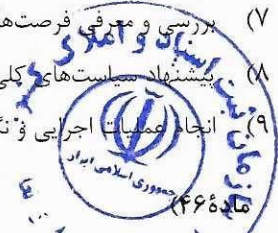 ۷) بررسی و معرفی فرصت‌ها
۸) پیشنهاد سیاست‌های کلی
۹) انجام عملیات اجرایی و
سازمان ثبت اسناد و املاک کشور
جمهوری اسلامی ایران
مادهٔ ۴۶)